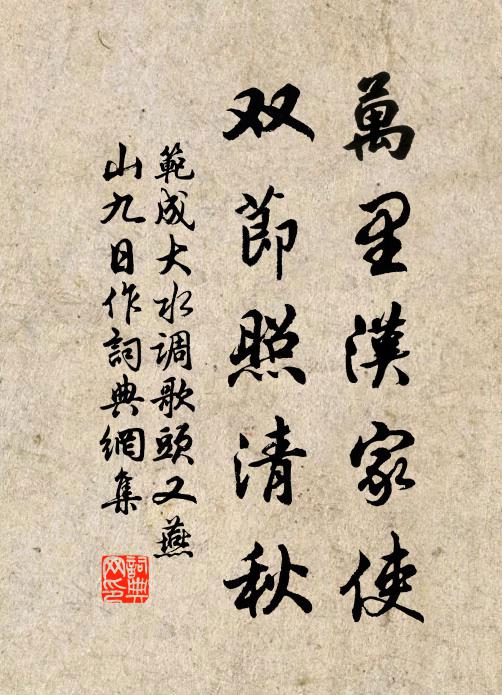 萬里漢家使
双節照清秋
範成大水调歌頭又燕
山九日作詞典網集
詞典
网印